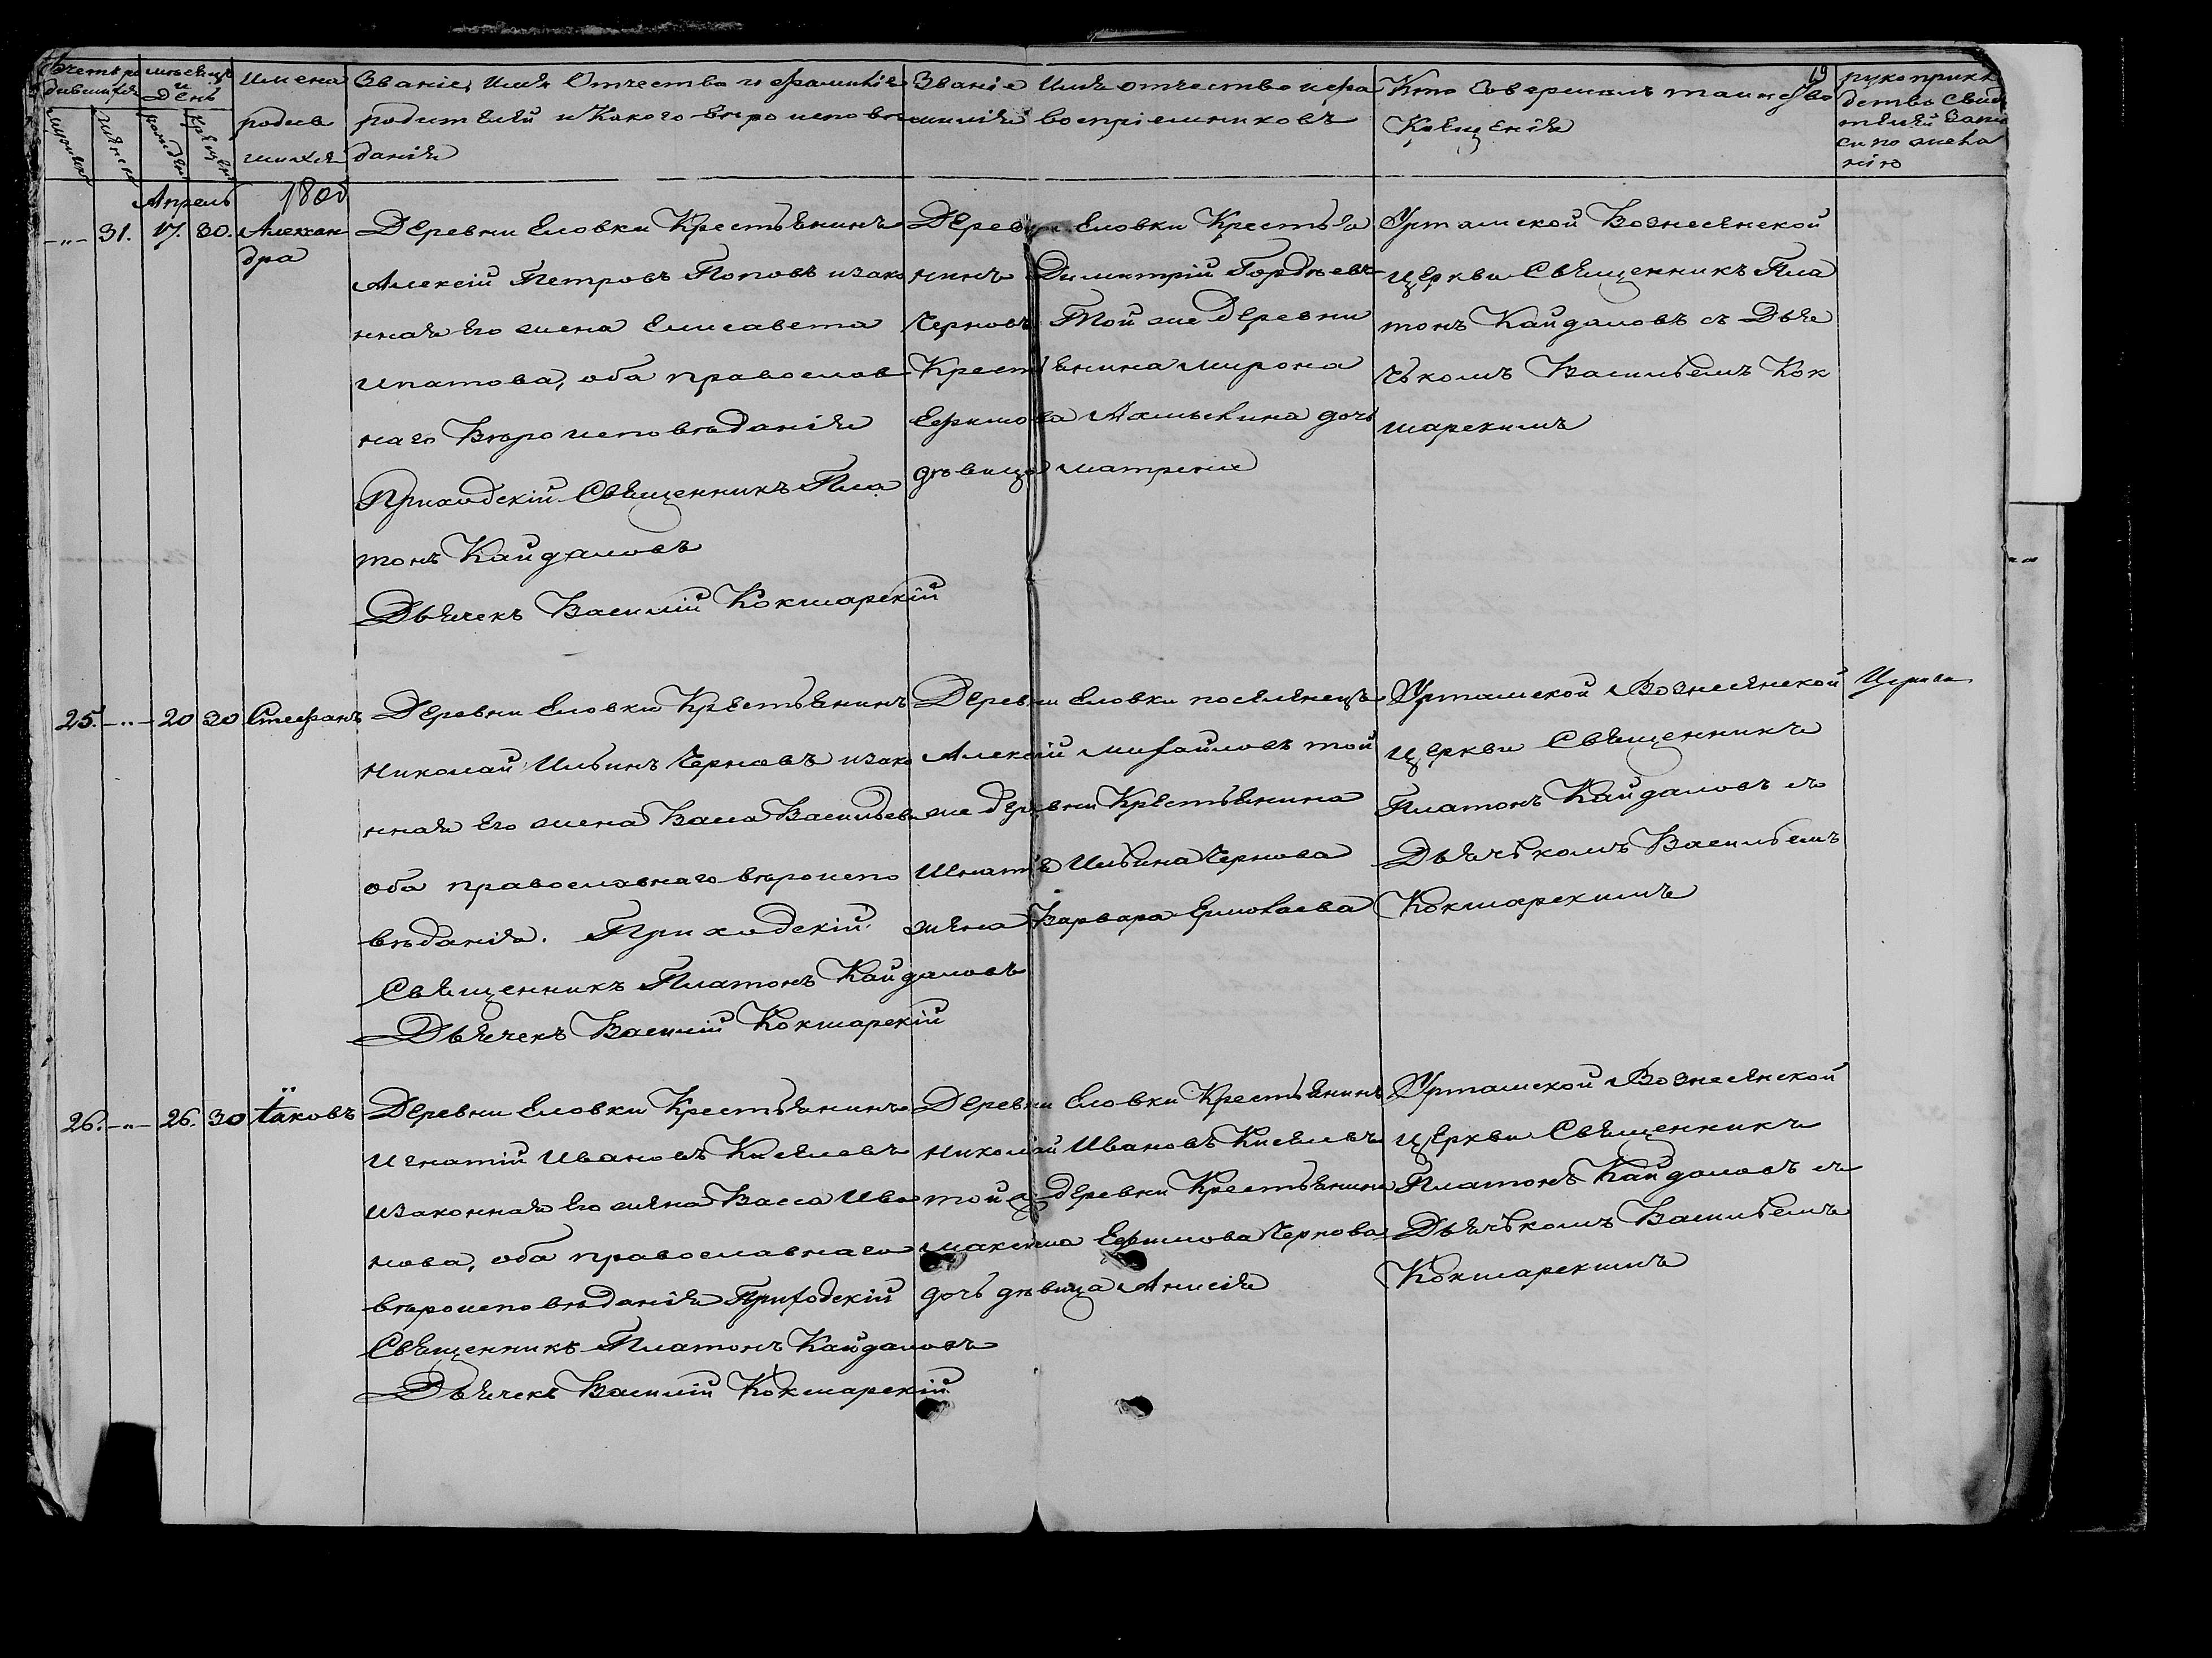 19
Счетъ ро
дившихся
мѣсяцъ
и
День
Имена
родив
шихся
Званіе, Имя Отчество и фамилія
родителей и Какого вѣроиспове
данія
Званіе Имя отчество и фа
милія воспріемниковъ
Кто Совершалъ таинство
Крещенія
рукоприкла
детвы Свидѣ
телей Запи
си по жела
нію
Апрель
-"- 31. 17. 30.
Алексан
дра
Деревни Еловки Крестьянинъ
Алексій Петровъ Поповъ изако
нная Его жена Елисавета
Ипатова, оба православ
наго Вѣроисповѣданія
Приходскій Священникъ Пла
тонъ Кайдаловъ
Дьячекъ Василій Кокшарскій
Деревни Еловки Крестья
нинъ Димитрій Гордѣевъ
Черновъ Той же деревни
Крестьянина Мирона
Ефимова дочь
дѣвица Матрена
Урташской Вознесенской
церкви Священникъ Пла
тонъ Кайдаловъ съ Дья
чькомъ Васильемъ Кок
шарскимъ
25. -"- 20 30 Стефанъ
Деревни Еловки Крестьянинъ
Николай Ильинъ Черновъ изако
нная Его жена Васа Васильева
оба православнаго вѣроиспо
вѣданія. Приходскій
Священникъ Платонъ Кайдаловъ
Дьячекъ Василій Кокшарскій
Деревни Еловки поселенецъ
Алексій Михайловъ той
же деревни Крестьянина
Игнатія Ильина Чернова
жена Варвара Ермолаева
Урташской Вознесенской
церкви Священникъ
Платонъ Кайдаловъ съ
Дьячькомъ Васильемъ
Кокшарскимъ
26. -"- 26. 30 Іаковъ
Деревни Еловки Крестьянинъ
Игнатій Ивановъ Киселевъ
изаконная Его жена Васса Ива
нова, оба православнаго
вѣроисповѣданія Приходскій
Священникъ Платонъ Кайдаловъ
Дьячекъ Василій Кокшарскій
Деревни Еловки Крестьянинъ
Николай Ивановъ Киселевъ
той деревни Крестьянина
Максима Ефимова Чернова
дочь дѣвица Анисія
Урташской Вознесенской
церкви Священникъ
Платонъ Кайдаловъ съ
Дьячькомъ Васильемъ
Кокшарскимъ